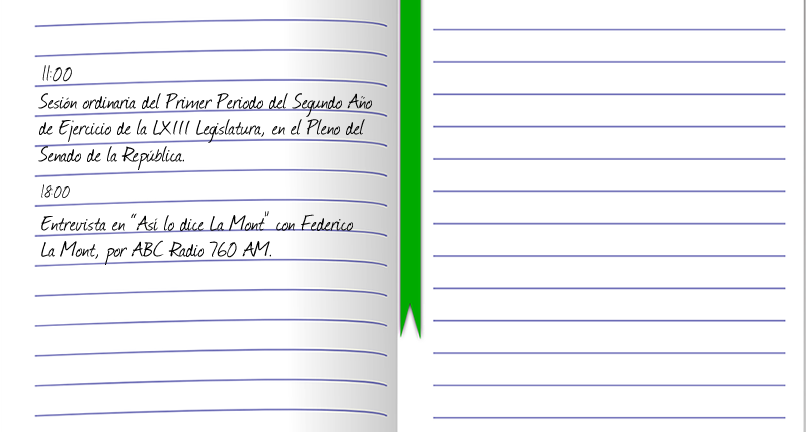 11:00
Sesión ordinaria del Primer Periodo del Segundo Año
de Ejercicio de la LXIII Legislatura, en el Pleno del
Senado de la República.
18:00
Entrevista en "Así lo dice La Mont" con Federico
La Mont, por ABC Radio 760 AM.